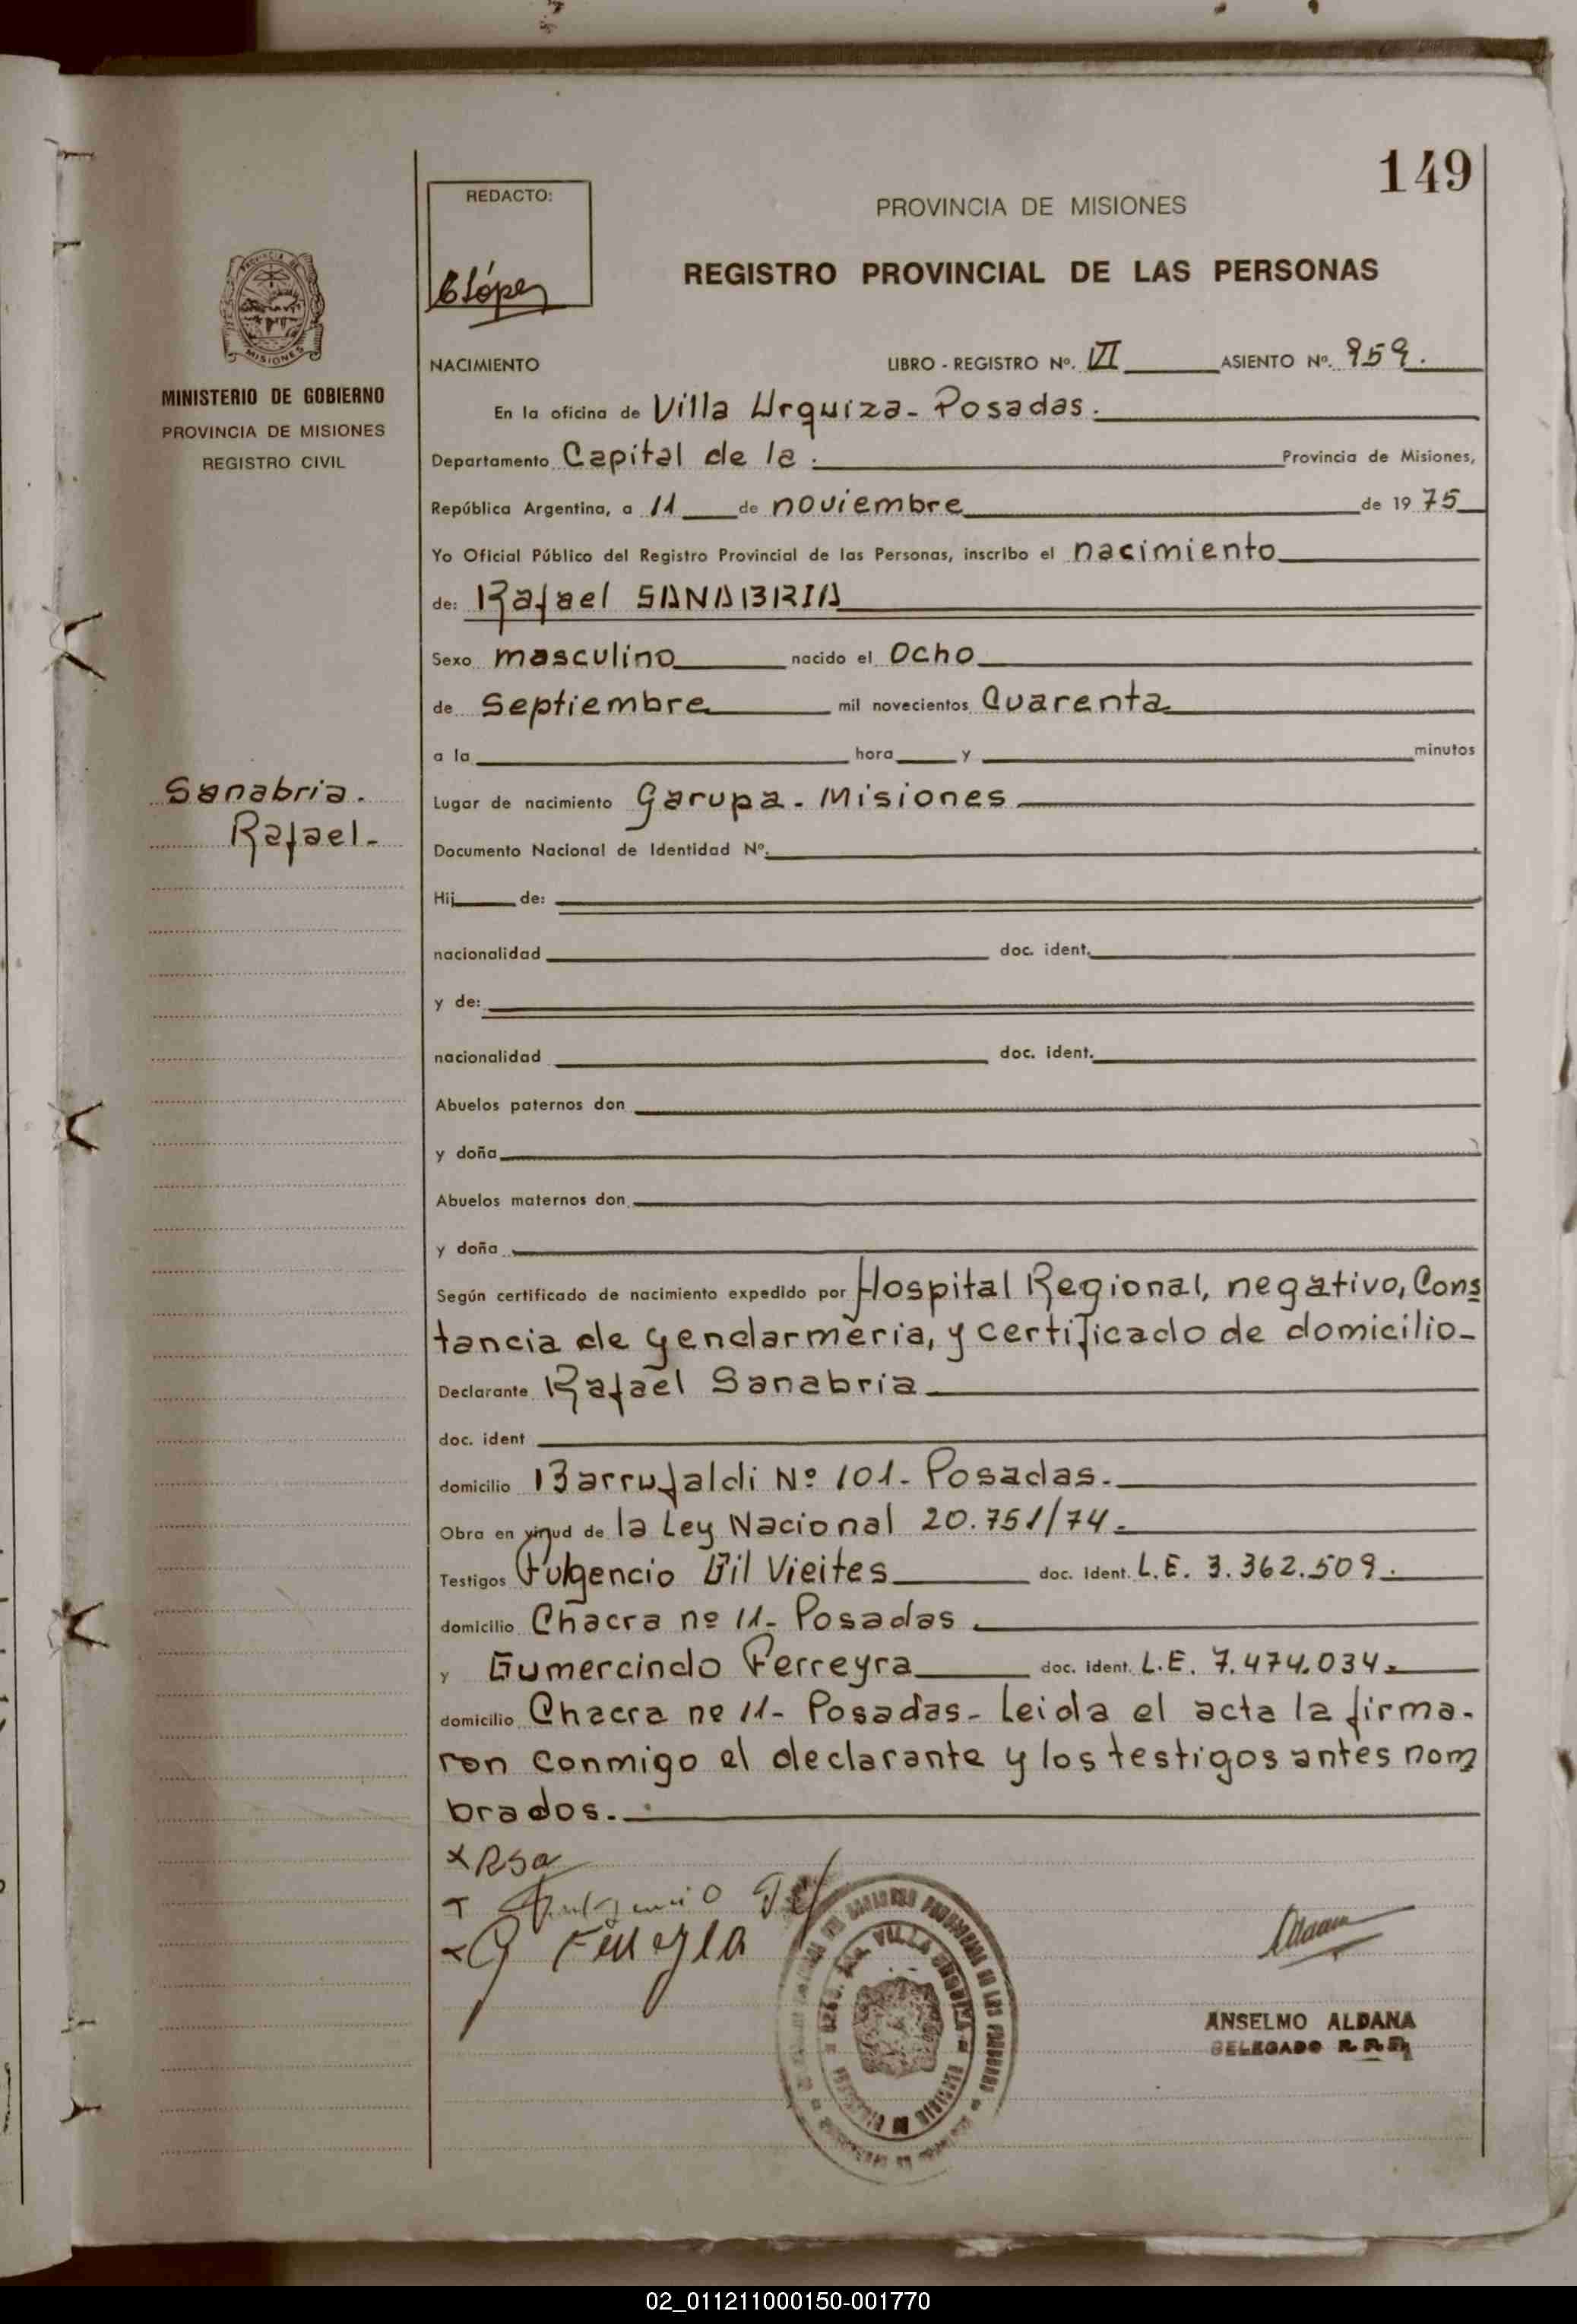 149
REDACTO:
PROVINCIA DE MISIONES
REGISTRO PROVINCIAL DE LAS PERSONAS
López
MISIONES
MINISTERIO DE GOBIERNO
PROVINCIA DE MISIONES
REGISTRO CIVIL
NACIMIENTO LIBRO - REGISTRO Nº. VI ASIENTO Nº. 959.
En la oficina de Villa Urquiza - Posadas.
Departamento Capital de la. Provincia de Misiones,
República Argentina, a 11 de noviembre de 1975
Yo Oficial Público del Registro Provincial de las Personas, inscribo el nacimiento
de: Rafael SANABRIA
Sexo masculino nacido el Ocho
de Septiembre mil novecientos Cuarenta
a la hora y minutos
Sanabria.
Rafael-
Lugar de nacimiento Garupa - Misiones
Documento Nacional de Identidad Nº.
Hij de:
nacionalidad doc. ident.
y de:
nacionalidad doc. ident.
Abuelos paternos don
y doña
Abuelos maternos don
y doña
Según certificado de nacimiento expedido por Hospital Regional, negativo, Cons
tancia de gendarmeria, y certificado de domicilio-
Declarante Rafael Sanabria
doc. ident
domicilio Barrufaldi Nº 101- Posadas.
Obra en virtud de la Ley Nacional 20.751/74.
Testigos Fulgencio Gil Vieites doc. ident. L.E. 3.362.509.
domicilio Chacra nº 11- Posadas
y Gumercindo Ferreyra doc. ident. L.E. 7.474.034.
domicilio Chacra nº 11- Posadas- Leida el acta la firma-
ron conmigo el declarante y los testigos antes nom
brados.-
x RSa
Fulgencio
G Ferreyra
VILLA URQUIZA
ANSELMO ALDANA
DELEGADO R.P.P.
02_011211000150-001770